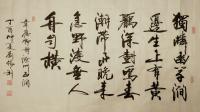 獨憐幽草澗
邊生上有黄
鸝深樹鳴春
潮帶雨晚来
急野渡無人
舟自横
韋應物詩滁州西澗
丁酉仲夏